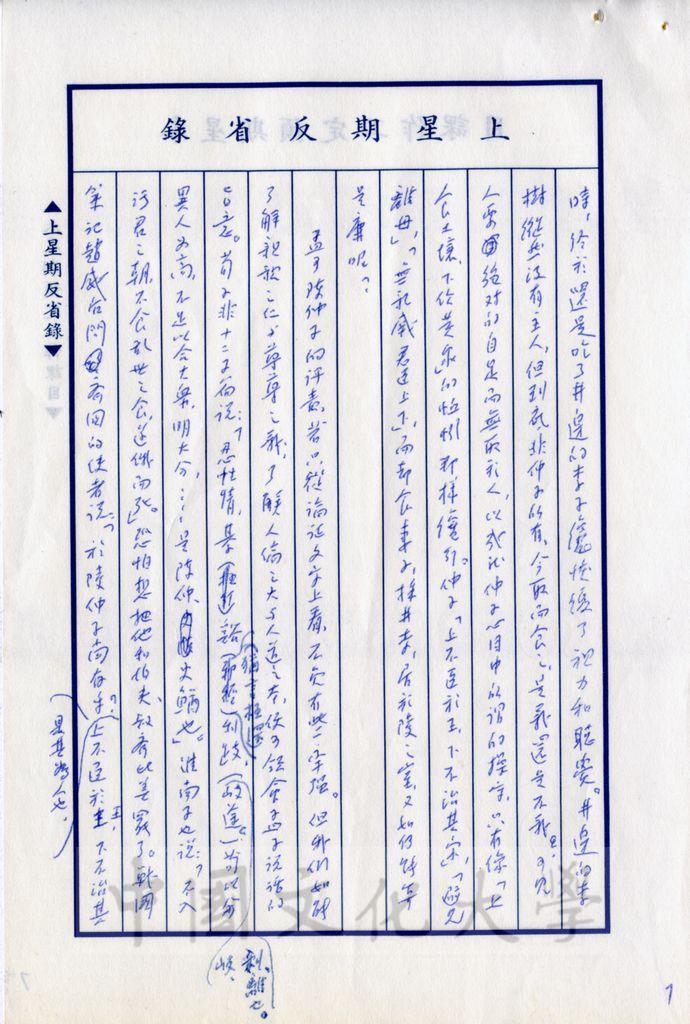 上星期反省錄
時，終於還是吃了井邊的李子，纔恢復了視力和聽覺。井邊的李
樹縱然沒有主人，但到底非仲子所有，今取而食之，是義還是不義？可見
人要絕對的自足而無取於人，以我說仲子心目中所謂的操守，只有像「上
食土壤，下飲黃泉」的蚯蚓那樣纔行。仲子「上不臣於王，下不治其家」，「避兄
離母」，而却食妻子，採井李，居於陵之室，又如何能算
是廉呢？
孟子對陳仲子的評責，若只從論證文字上看，不免有些牽強。但我們如能
了解親親之仁與尊尊之義，了解人倫之大與人道之本，便可領會孟子說話的
旨意。荀子非十二子篇說：「忍性情，綦谿利跂，(歧途) 苟以分
異人為高，不足以合大眾，明大分，…是陳仲、史鰌也。」淮南子也說：「不入
洿君之朝，不食亂世之食，遂餓而死。」恐怕想把他和伯夷、叔齊比美罷了。戰國
策記趙威后問齊國的使者說：「於陵仲子尚存乎？上不臣於王，下不治其
是其為人也，
▲上星期反省錄▼
中國文化大學
7